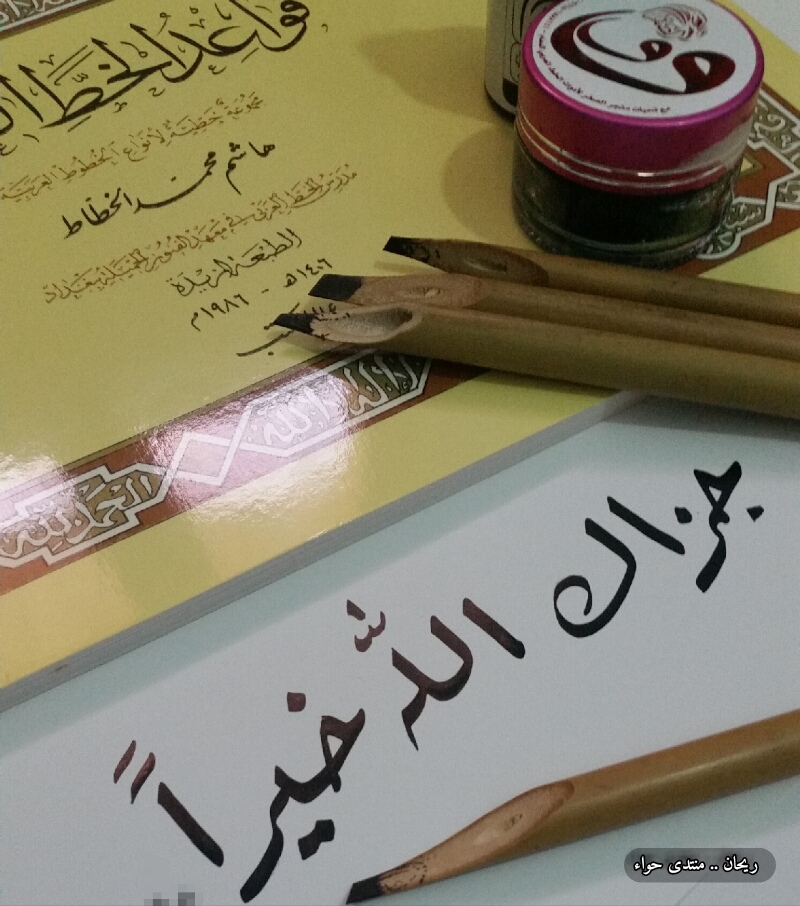 قواعد الخط
مجموعة خطية لأنواع الخطوط العربية
هاشم محمد الخطاط
مدرس الخط العربي في معهد الفنون الجميلة ببغداد
الطبعة المزيدة
١٤٠٦ هـ - ١٩٨٦ م
الحمد لله
جزاك الله خيراً
ريحان .. منتدى حواء